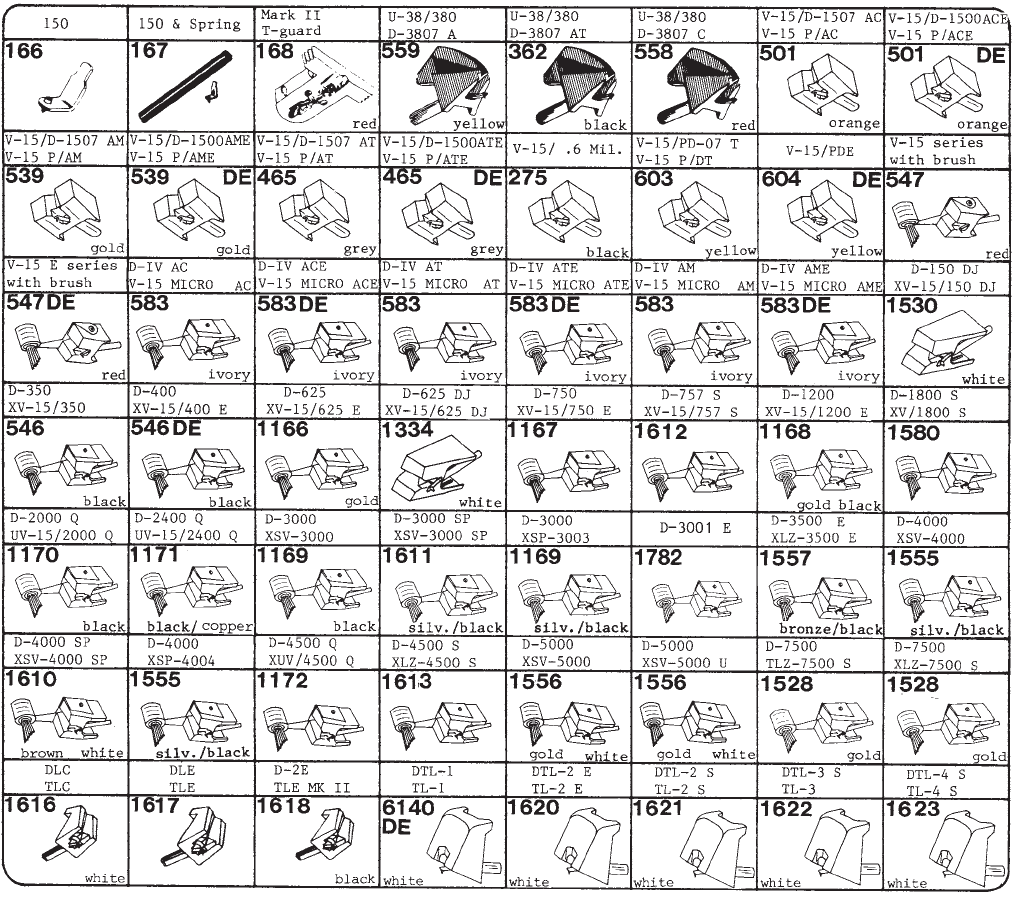 150
150 & Spring
Mark II
T-guard
U-38/380
D-3807 A
U-38/380
D-3807 AT
U-38/380
D-3807 C
V-15/D-1507 AC
V-15 P/AC
V-15/D-1500ACE
V-15 P/ACE
166
167
168
red
559
yellow
362
black
558
red
501
orange
501 DE
orange
V-15/D-1507 AM
V-15 P/AM
V-15/D-1500AME
V-15 P/AME
V-15/D-1507 AT
V-15 P/AT
V-15/D-1500ATE
V-15 P/ATE
V-15/ .6 Mil.
V-15/PD-07 T
V-15 P/DT
V-15/PDE
V-15 series
with brush
539
gold
539 DE
gold
465
grey
465 DE
grey
275
black
603
yellow
604 DE
yellow
547
red
V-15 E series
with brush
D-IV AC
V-15 MICRO AC
D-IV ACE
V-15 MICRO ACE
D-IV AT
V-15 MICRO AT
D-IV ATE
V-15 MICRO ATE
D-IV AM
V-15 MICRO AM
D-IV AME
V-15 MICRO AME
D-150 DJ
XV-15/150 DJ
547 DE
red
583
ivory
583 DE
ivory
583
ivory
583 DE
ivory
583
ivory
583 DE
ivory
1530
white
D-350
XV-15/350
D-400
XV-15/400 E
D-625
XV-15/625 E
D-625 DJ
XV-15/625 DJ
D-750
XV-15/750 E
D-757 S
XV-15/757 S
D-1200
XV-15/1200 E
D-1800 S
XV/1800 S
546
black
546 DE
black
1166
gold
1334
white
1167
1612
1168
gold black
1580
D-2000 Q
UV-15/2000 Q
D-2400 Q
UV-15/2400 Q
D-3000
XSV-3000
D-3000 SP
XSV-3000 SP
D-3000
XSP-3003
D-3001 E
D-3500 E
XLZ-3500 E
D-4000
XSV-4000
1170
black
1171
black/copper
1169
black
1611
silv./black
1169
silv./black
1782
1557
bronze/black
1555
silv./black
D-4000 SP
XSV-4000 SP
D-4000
XSP-4004
D-4500 Q
XUV/4500 Q
D-4500 S
XLZ-4500 S
D-5000
XSV-5000
D-5000
XSV-5000 U
D-7500
TLZ-7500 S
D-7500
XLZ-7500 S
1610
brown white
1555
silv./black
1172
1613
1556
gold white
1556
gold white
1528
gold
1528
gold
DLC
TLC
DLE
TLE
D-2E
TLE MK II
DTL-1
TL-1
DTL-2 E
TL-2 E
DTL-2 S
TL-2 S
DTL-3 S
TL-3
DTL-4 S
TL-4 S
1616
white
1617
1618
black
6140
DE
white
1620
white
1621
white
1622
white
1623
white